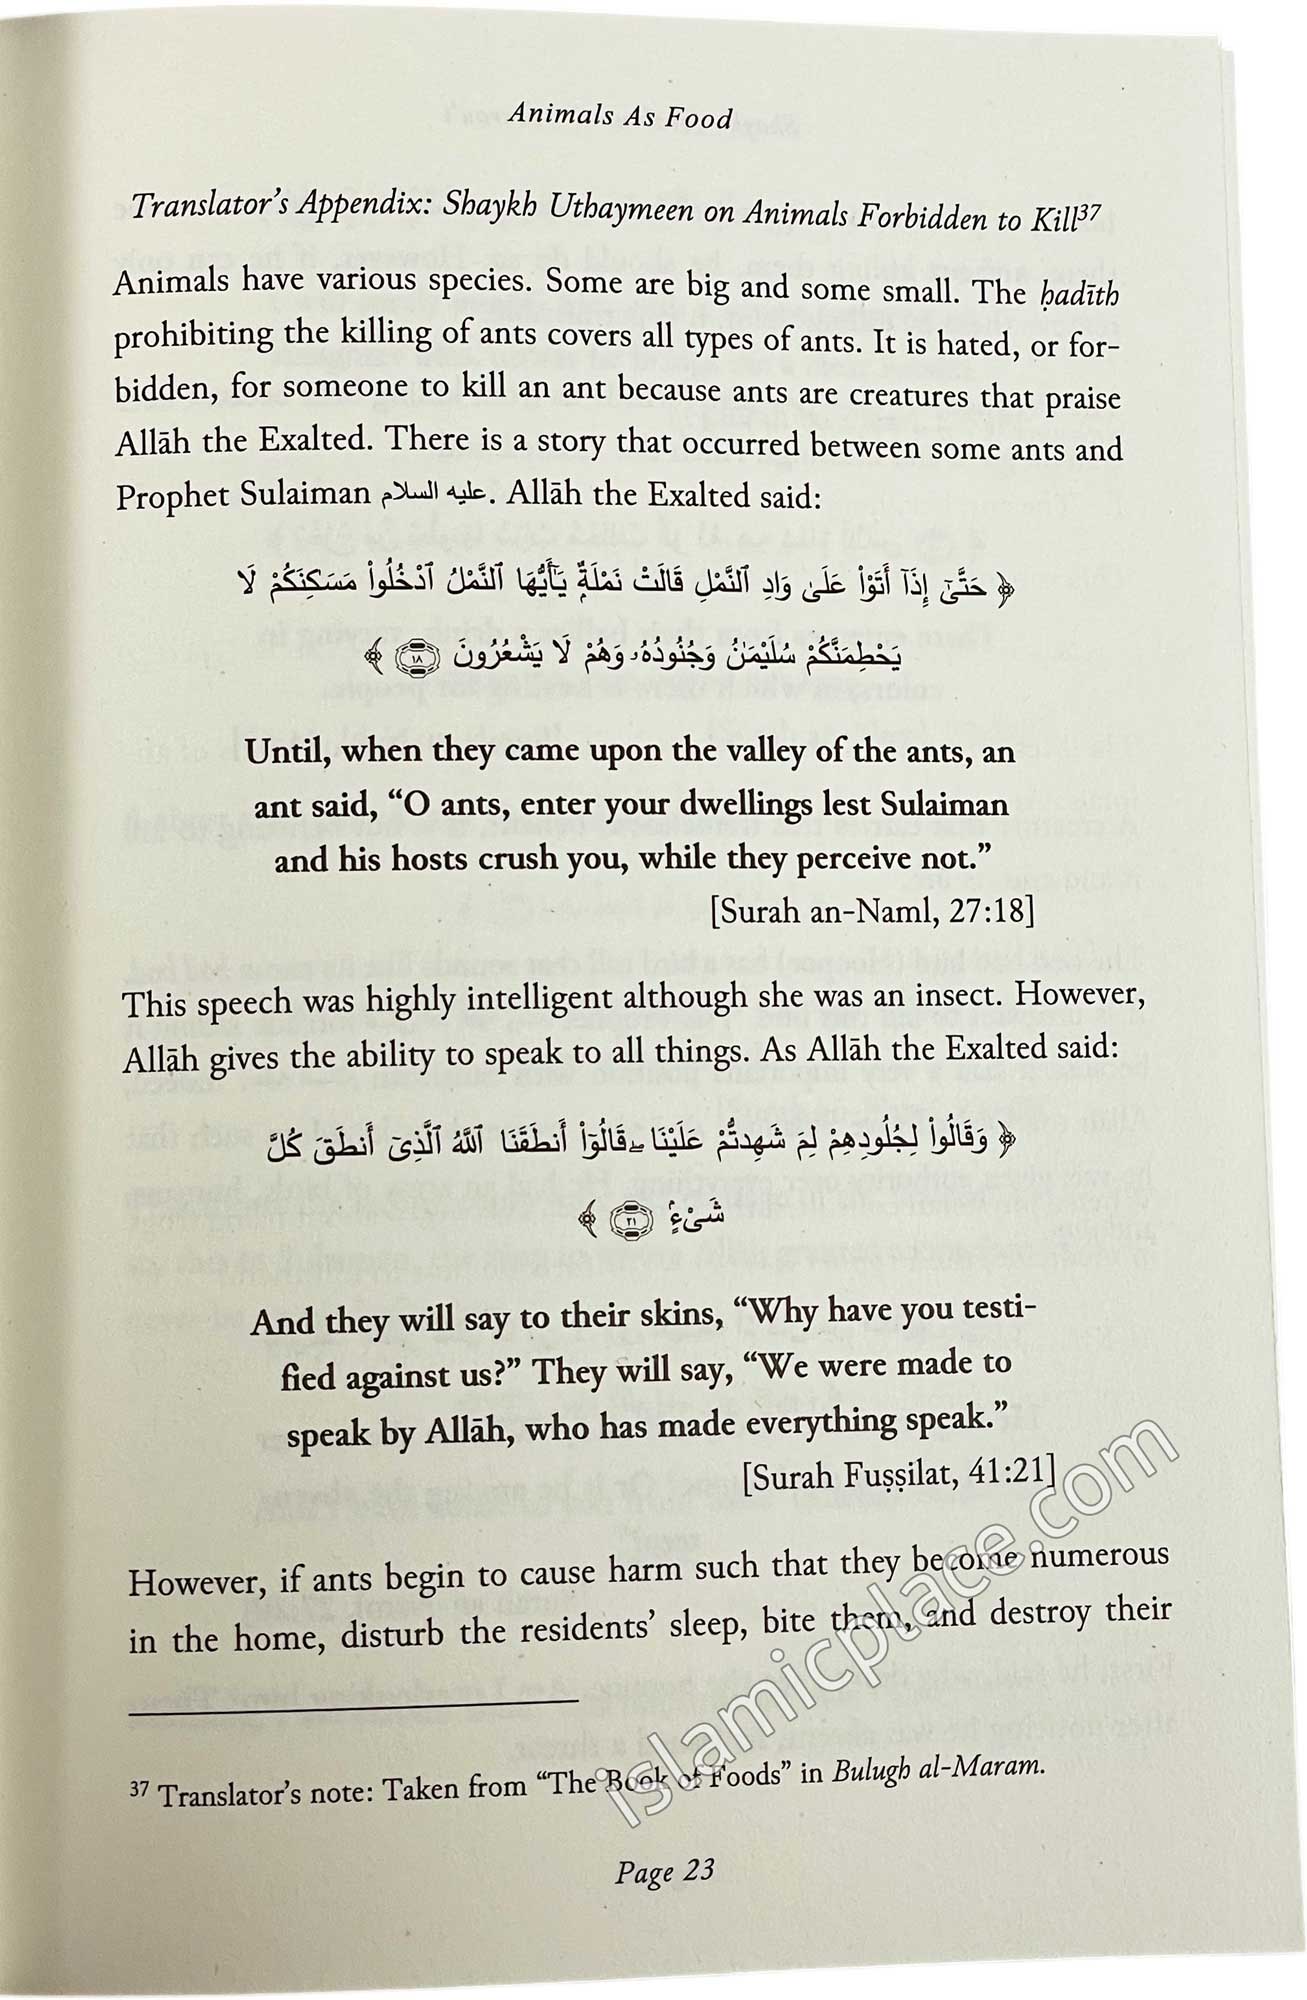 Animals As Food
Translator's Appendix: Shaykh Uthaymeen on Animals Forbidden to Kill³⁷
Animals have various species. Some are big and some small. The ḥadīth
prohibiting the killing of ants covers all types of ants. It is hated, or for-
bidden, for someone to kill an ant because ants are creatures that praise
Allāh the Exalted. There is a story that occurred between some ants and
Prophet Sulaiman عليه السلام. Allāh the Exalted said:
﴿ حَتَّىٰٓ إِذَآ أَتَوْا۟ عَلَىٰ وَادِ ٱلنَّمْلِ قَالَتْ نَمْلَةٌ يَـٰٓأَيُّهَا ٱلنَّمْلُ ٱدْخُلُوا۟ مَسَـٰكِنَكُمْ لَا
يَحْطِمَنَّكُمْ سُلَيْمَـٰنُ وَجُنُودُهُۥ وَهُمْ لَا يَشْعُرُونَ ١٨ ﴾
Until, when they came upon the valley of the ants, an
ant said, “O ants, enter your dwellings lest Sulaiman
and his hosts crush you, while they perceive not.”
[Surah an-Naml, 27:18]
This speech was highly intelligent although she was an insect. However,
Allāh gives the ability to speak to all things. As Allāh the Exalted said:
﴿ وَقَالُوا۟ لِجُلُودِهِمْ لِمَ شَهِدتُّمْ عَلَيْنَا ۖ قَالُوٓا۟ أَنطَقَنَا ٱللَّهُ ٱلَّذِىٓ أَنطَقَ كُلَّ
شَىْءٍ ٢١ ﴾
And they will say to their skins, “Why have you testi-
fied against us?” They will say, “We were made to
speak by Allāh, who has made everything speak.”
[Surah Fuṣṣilat, 41:21]
However, if ants begin to cause harm such that they become numerous
in the home, disturb the residents’ sleep, bite them, and destroy their
islamicplace.com
³⁷ Translator’s note: Taken from “The Book of Foods” in Bulugh al-Maram.
Page 23